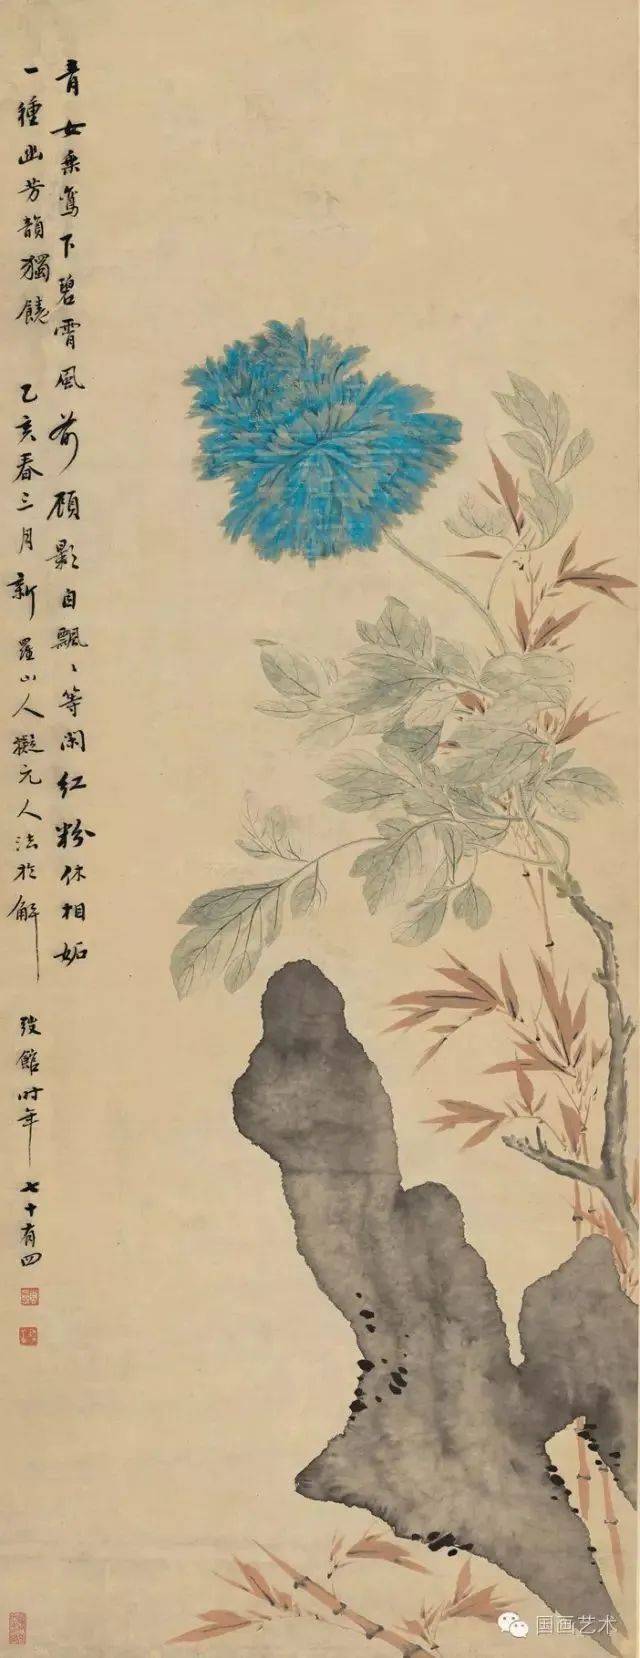 青女乘鸾下碧霄風前顧影自飄〻等闲红粉休相妬
一種幽芳韻獨饒 乙亥春三月新羅山人擬元人法於解
弢館时年七十有四
国画艺术